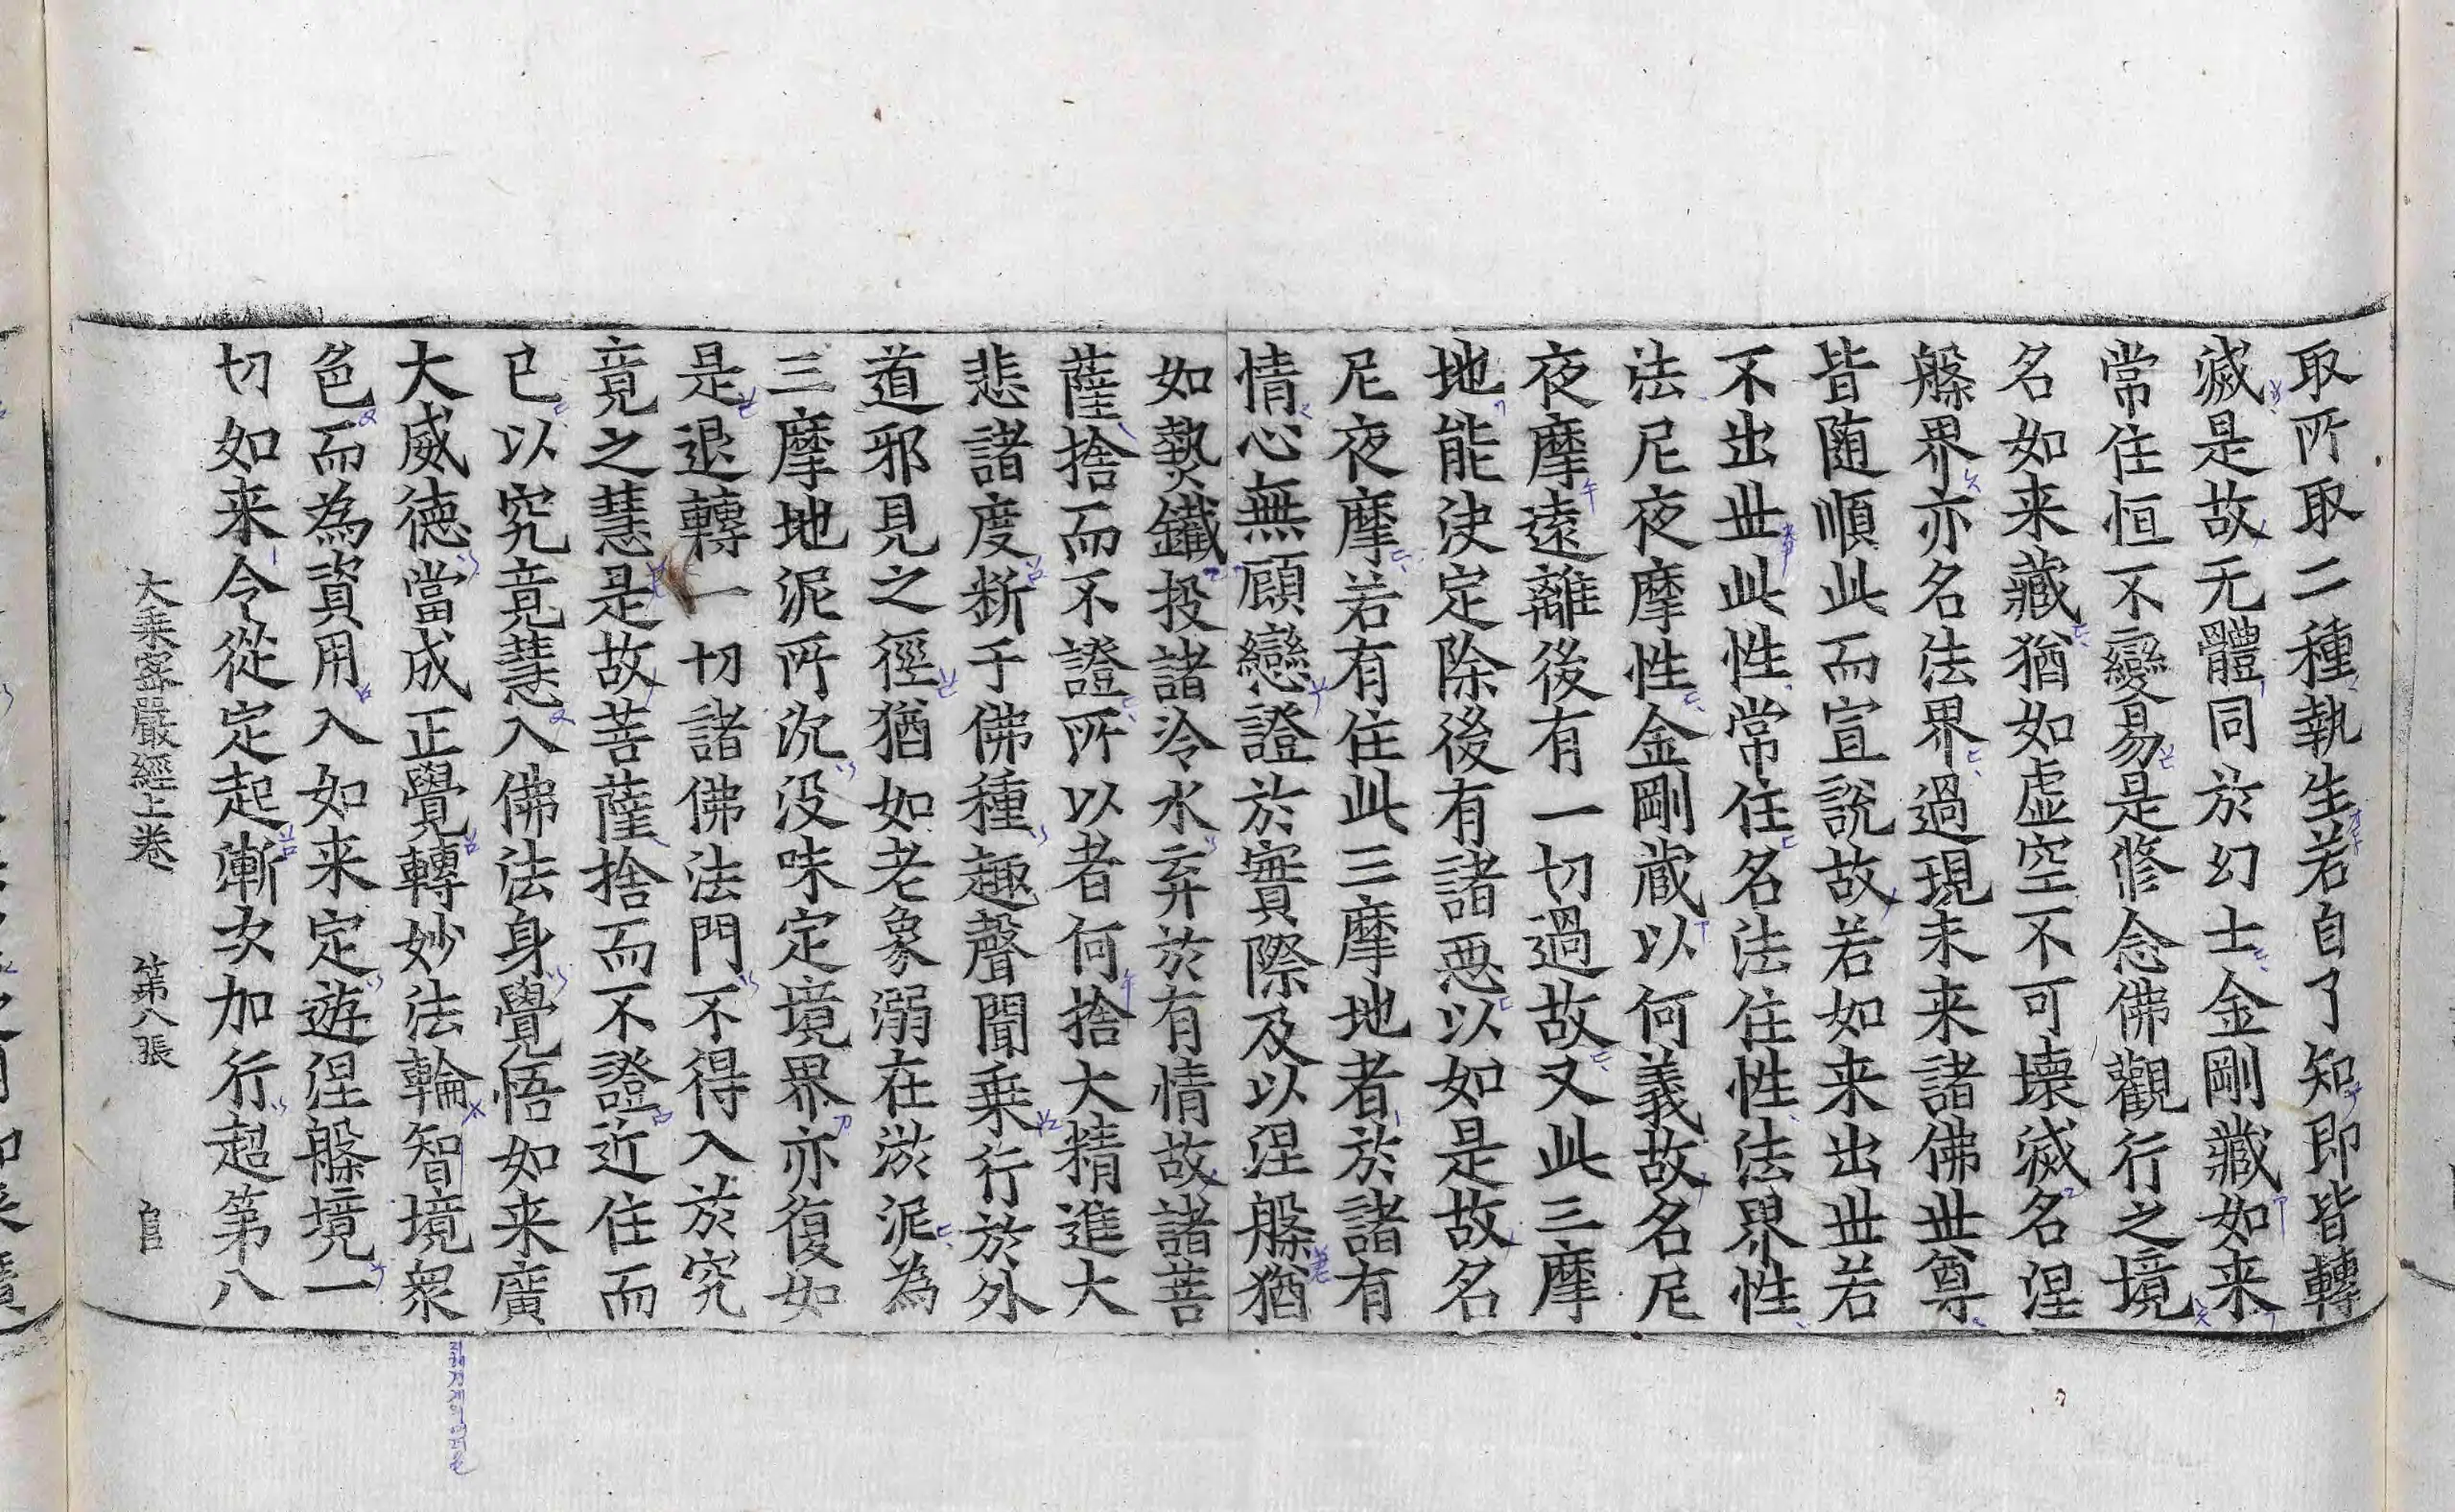 取所取二種執生若自了知即皆轉
滅是故无體同於幻士金剛藏如来
常住恒不變易是修念佛觀行之境
名如来藏猶如虚空不可壊滅名涅
槃界亦名法界過現未来諸佛世尊
皆随順此而宣説故若如来出世若
不出世此性常住名法住性法界性
法尼夜摩性金剛蔵以何義故名尼
夜摩遠離後有一切過故又此三摩
地能决定除後有諸悪以如是故名
尼夜摩若有住此三摩地者於諸有
情心無顧戀證於實際及以涅槃猶
如熱鐵投諸冷水弃於有情故諸菩
薩捨而不證所以者何捨大精進大
悲諸度断于佛種趣聲聞乗行於外
道邪見之徑猶如老象溺在淤泥為
三摩地泥所沉没味定境界亦復如
是退轉一切諸佛法門不得入於究
竟之慧是故菩薩捨而不證近住而
已以究竟慧入佛法身覺悟如来廣
大威徳當成正覺轉妙法輪智境衆
色而為資用入如来定遊涅槃境一
切如来令從定起漸次加行超第八
大乗密嚴經上卷 第八張